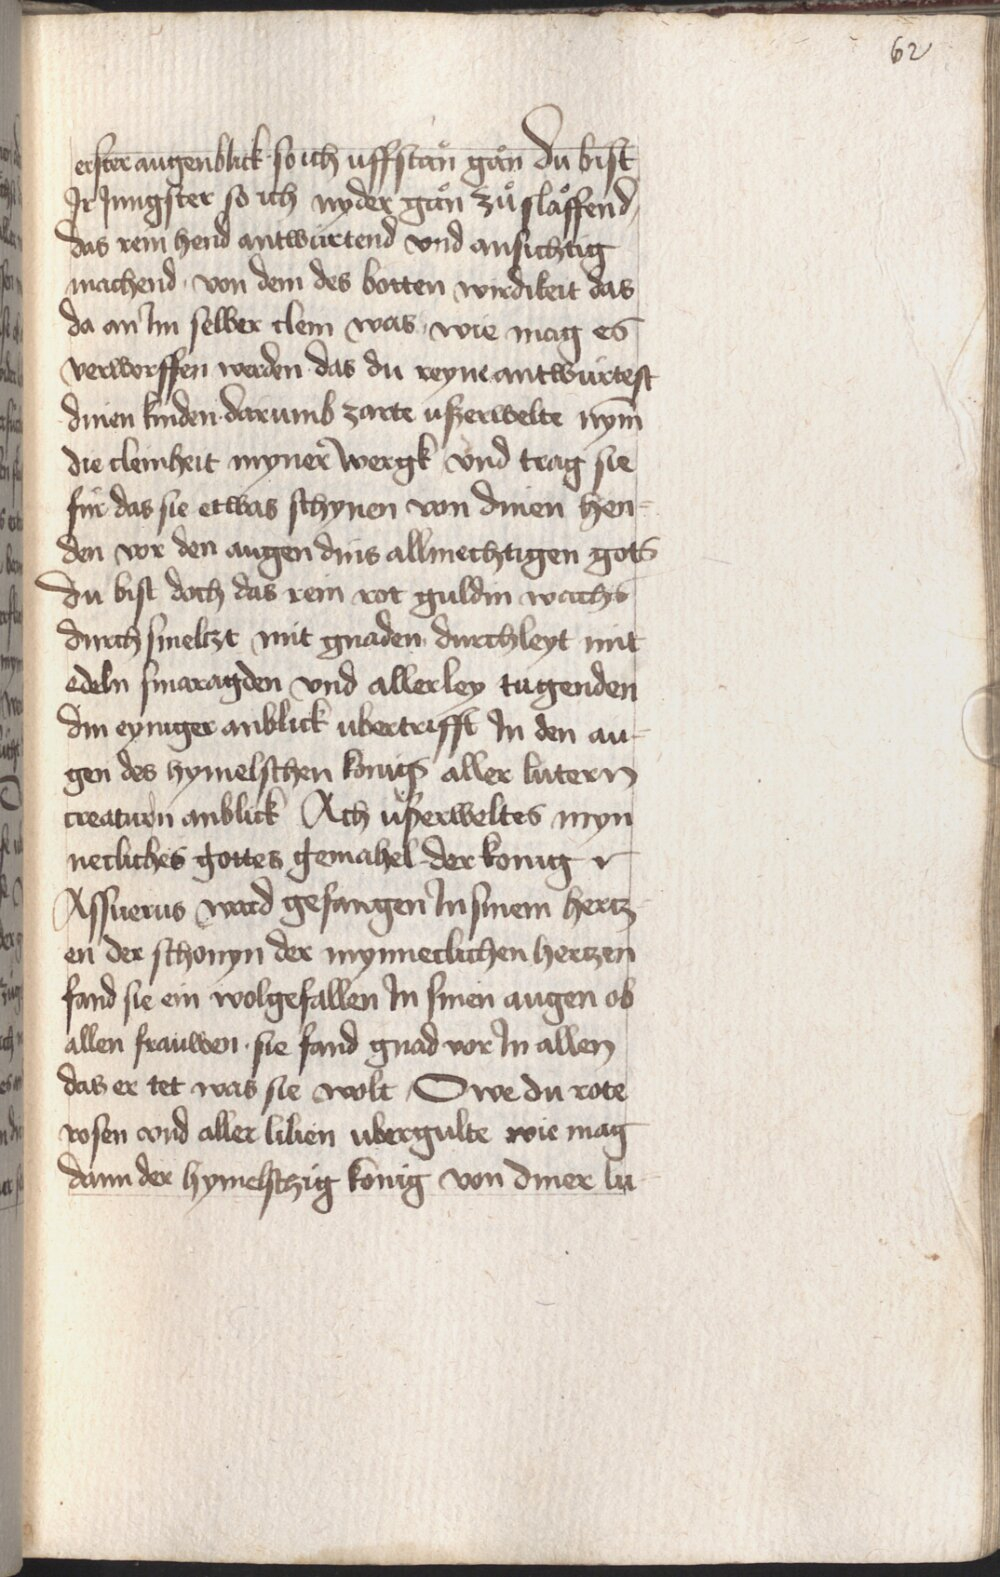 62
erster augenblick · so ich uffstan̊ gan̊ Du bist
Ir Jungster so ich nyder gan̊ zů slaͦffend /
das rein hend antwürtend vnd ansichtig
machend · von dem des botten wirdikeit das
da an Im selber clein was · wie mag es
verworffen werden · das du reyne antwürtest
dinen kinden · darumb zarte uszerwelte nym̄
die cleinheit myner wergk vnd trag sie
für das sie etwas schynen von dinen hen-
den vor den augen dins allmechtigen gots
Du bist doch das rein rot guldin wachs
durchsmeltzt mit gnaden · durchleyt mit
edeln smaragden vnd allerley tugenden
din eyniger anblick ubertrifft In den au-
gen des hymelschen konigs aller lutern
creaturn anblick Ach uszerweltes myn
necliches gottes gemahel · der konig
Assuerus ward gefangen In sinem hertz-
en der schonyn der mynneclichen herzen
fand sie ein wolgefallen In sinen augen ob
allen frauwen · sie fand gnad vor In allen
das er tet was sie wolt O we du rote
rosen vnd aller lilien ubergulte wie mag
dann der hymelschzig konig von diner lu-